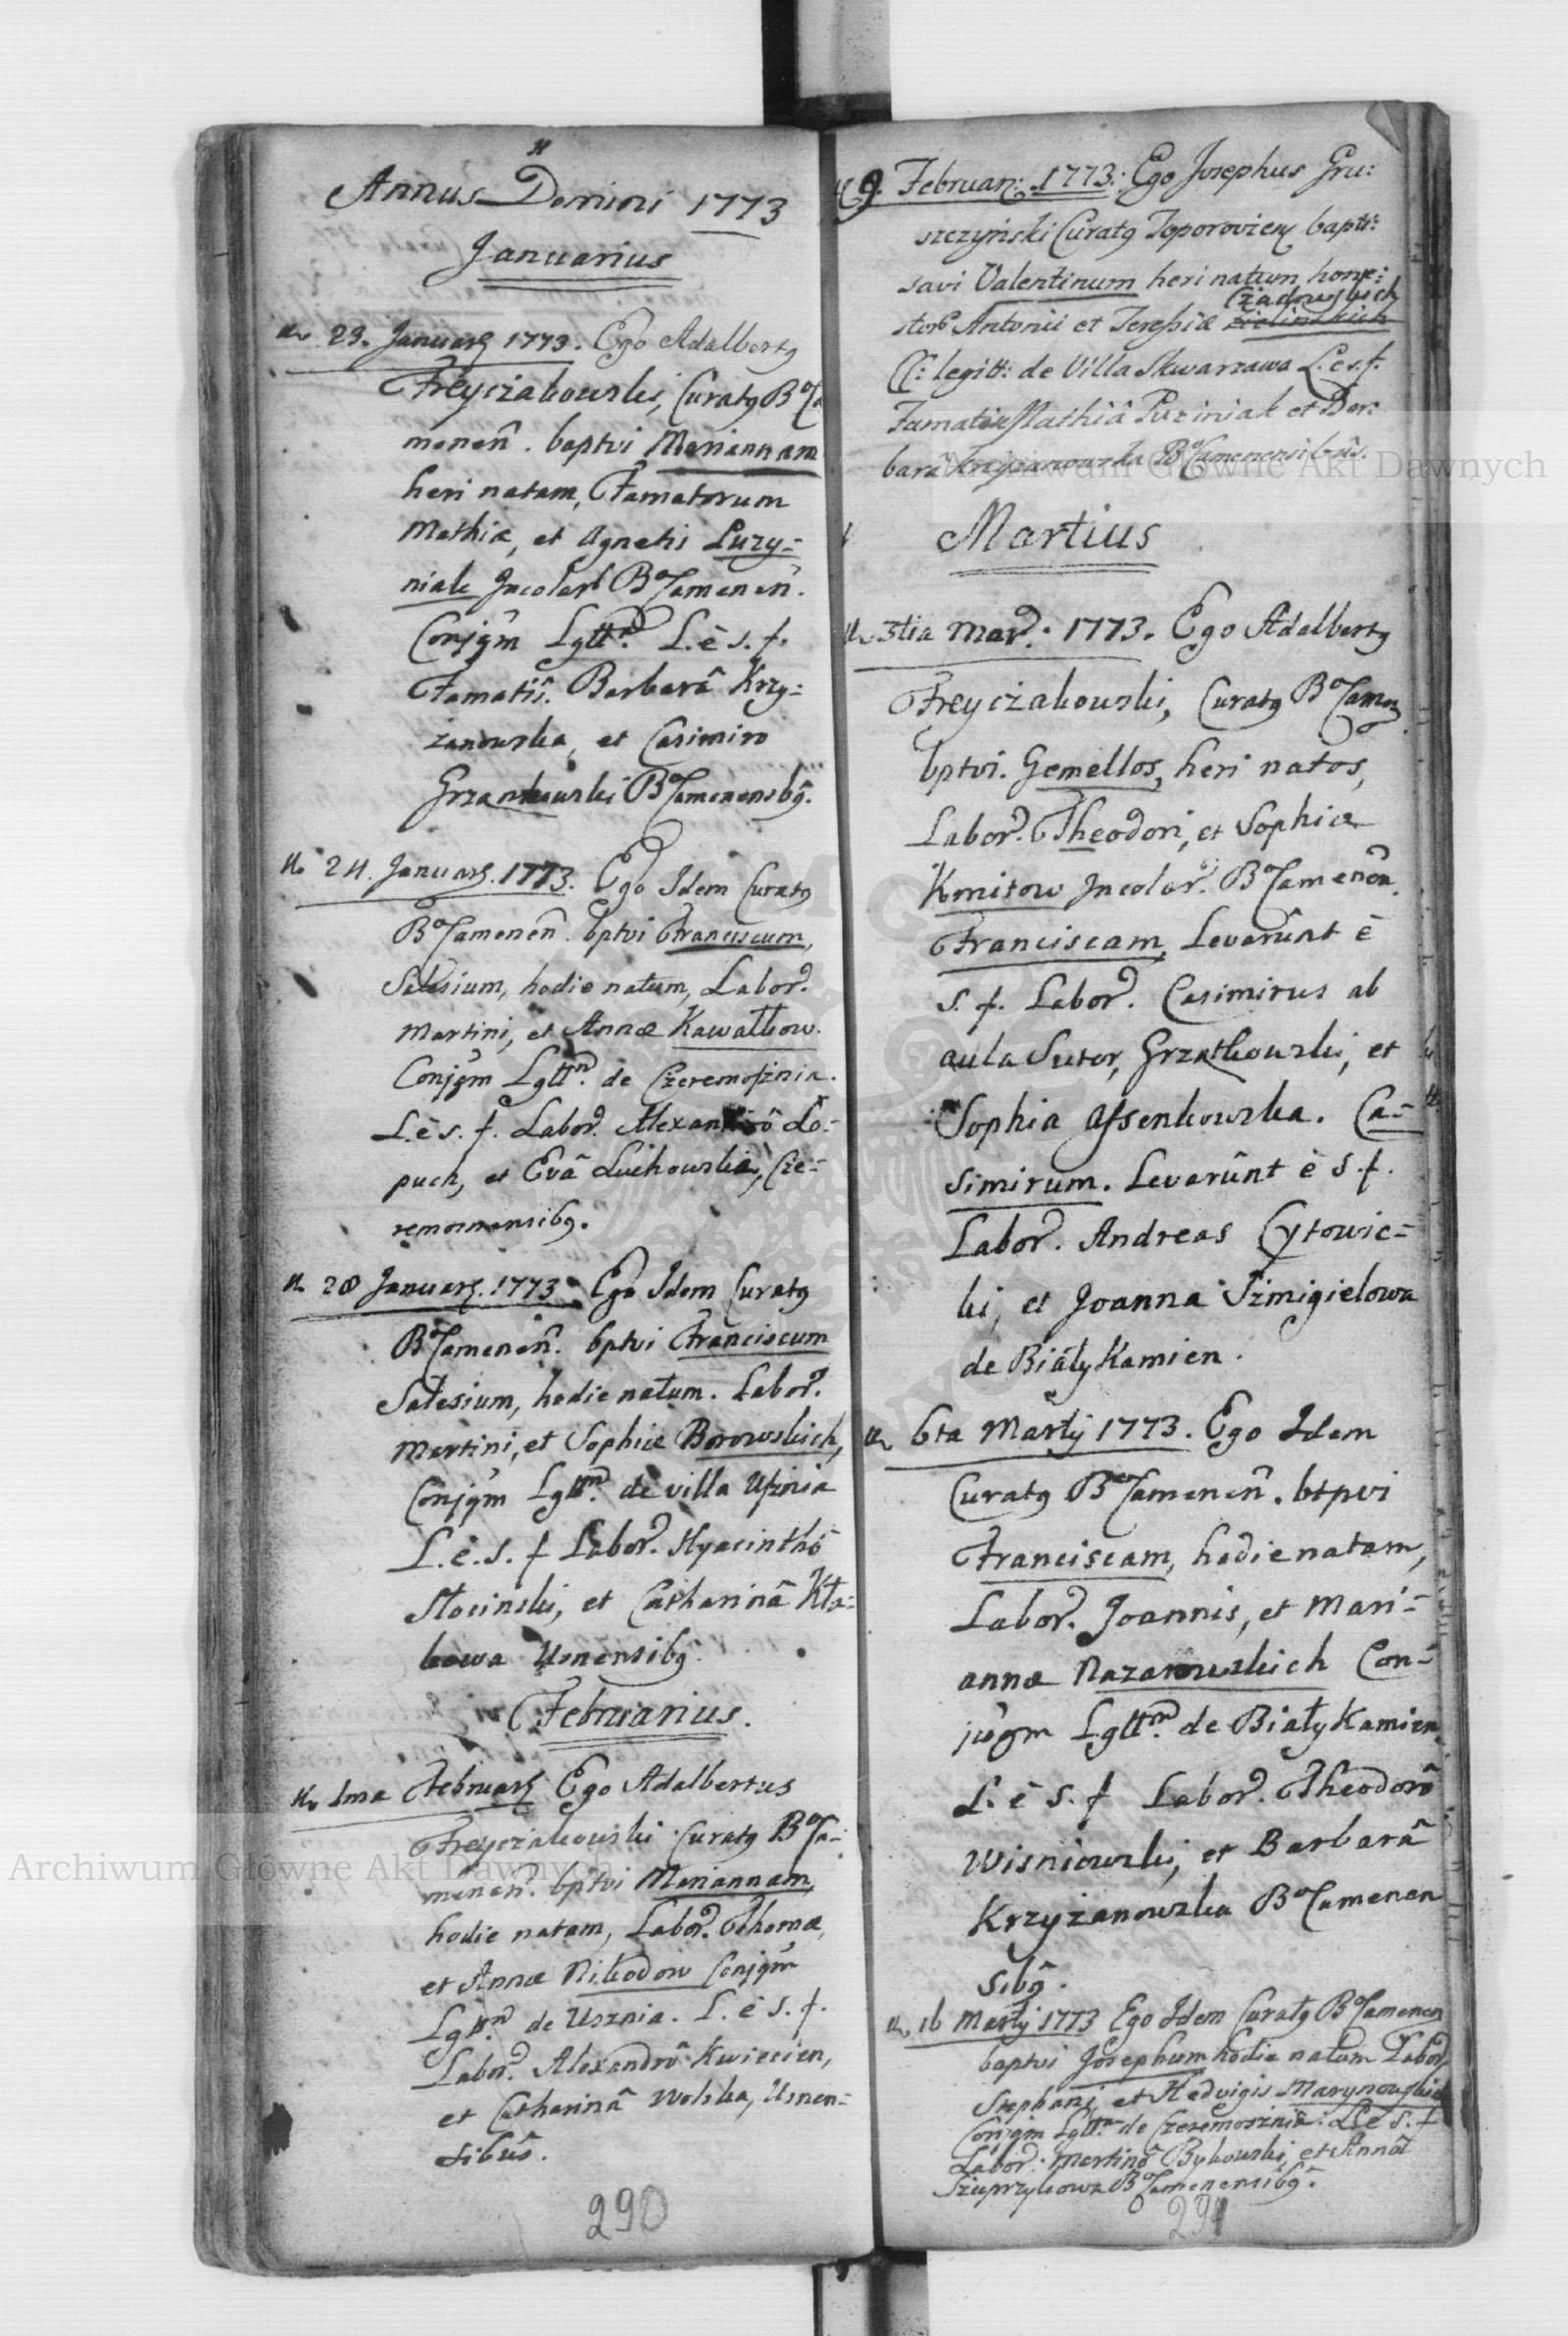 Annus Domini 1773
Januarius
23. Januarÿ 1773. Ego Adalbertg
Freyciżakowski, Curatg BoCa
menen̄. baptvi Mariannam
heri natam, Famatorum
Mathiæ, et Agnetis Puzy=
niak Incolar̃ BoCamenen̄.
Conjgm̄ Lgttm̃. L. è s. f.
Famatis. Barbarâ Krzy=
żanowska, et Casimiro
Grzankowski BoCamenensbg̃.
24. Januarÿ. 1773. Ego Idem Curatg
BoCamenen̄. bptvi Franciscum,
Salesium, hodie natum, Labor̃.
Martini, et Annæ Kawałkow.
Conjgm̄ Lgttm̃. de Czeremosznia.
L. è s. f. Labor̃. Alexandrô Ło=
puch, et Evâ Luchowska, Cze=
remosnensibg.
28 Januarÿ. 1773. Ego Idem Curatg
BoCamenen̄. bptvi Franciscum
Salesium, hodie natum. Labor̃.
Martini, et Sophiæ Borowskich,
Conjgm̄ Lgttm̃. de villa Uſznia
L. è. s. f Labor̃. Hyacinthô
Słocinski, et Catharinâ Kła=
kowa Usnensibg̃.
Februarius.
1ma Februarÿ Ego Adalbertus
Freyciżakowski Curatg BoCa=
menen̄. bptvi Mariannam,
hodie natam, Labor̃. Thomæ,
et Annæ Nikodow Conjgm̄
Lgttm̃ de Usznia. L. è s. f.
Labor̃. Alexandrô Kwiecien,
et Catharinâ Wolska, Usnen=
sibūs.
290
9. Februarÿ: 1773: Ego Josephus Gru:
szczyński Curatg Toporoviem bapti:
savi Valentinum heri natum hone:
Czadowskich
stor̃ Antonii et Teresſiæ zielinskich
CC: legitt: de Villa Skwarzawa L. è s. f.
Famatis Mathiâ Puziniak et Bar:
barâ Krzyzanowska BoCamenensibūs.
Martius
3tia Mar̃. 1773. Ego Adalbertg
Freyciżakowski, Curatg BoCamen
bptvi. Gemellos, heri natos,
Labor̃. Theodori, et Sophiæ
Kmitow Incolar̃. BoCamenen̄.
Franciscam, Levarûnt è
s. f. Labor̃. Casimirus ab
aula Sutor, Grzatkowski, et
Sophia Aſsenkowska. Ca=
simirum. Levarûnt è s. f.
Labor̃. Andreas Cytowic=
ki, et Joanna Szmigielowa
de Biały Kamien.
6ta Martÿ 1773. Ego Idem
Curatg BoCamenen̄. btpvi
Franciscam, hodie natam,
Labor̃. Joannis, et Mari=
annæ Nazarowskich Con=
jūgm Lgttm̃ de Biały Kamien
L. è s. f Labor̃. Theodorô
Wisniowski, et Barbarâ
Krzyżanowska BoCamenen
sibg̃.
16 Martÿ 1773 Ego Idem Curatg BoCamenen
baptvi Josephum hodie natum Labor̃
Stephani, et Hedvigis Marynowskich
Conjgm Lgttm̃ de Czeremosznia: L. è s. f
Labor̃. Martinô Bykowski, et Annâ
Sziuprzykowa BoCamenensibg̃.
291
Archiwum Główne Akt Dawnych
Archiwum Główne Akt Dawnych